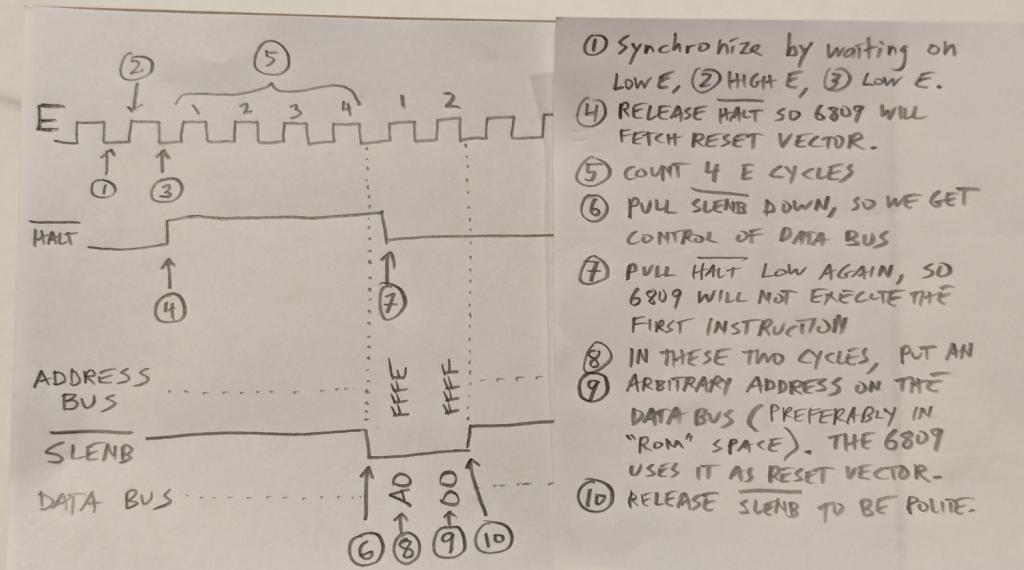 ②
⑤
1 2 3 4 1 2
E
① ③
HALT
④ ⑦
ADDRESS BUS
FFFE FFFF
SLENB
DATA BUS
A0 00
⑥ ⑧ ⑨ ⑩
① Synchronize by waiting on
LOW E, ② HIGH E, ③ LOW E.
④ RELEASE HALT SO 6809 WILL
FETCH RESET VECTOR.
⑤ COUNT 4 E CYCLES
⑥ PULL SLENB DOWN, SO WE GET
CONTROL OF DATA BUS
⑦ PULL HALT LOW AGAIN, SO
6809 WILL NOT EXECUTE THE
FIRST INSTRUCTION
⑧ IN THESE TWO CYCLES, PUT AN
⑨ ARBITRARY ADDRESS ON THE
DATA BUS (PREFERABLY IN
"ROM" SPACE). THE 6809
USES IT AS RESET VECTOR.
⑩ RELEASE SLENB TO BE POLITE.